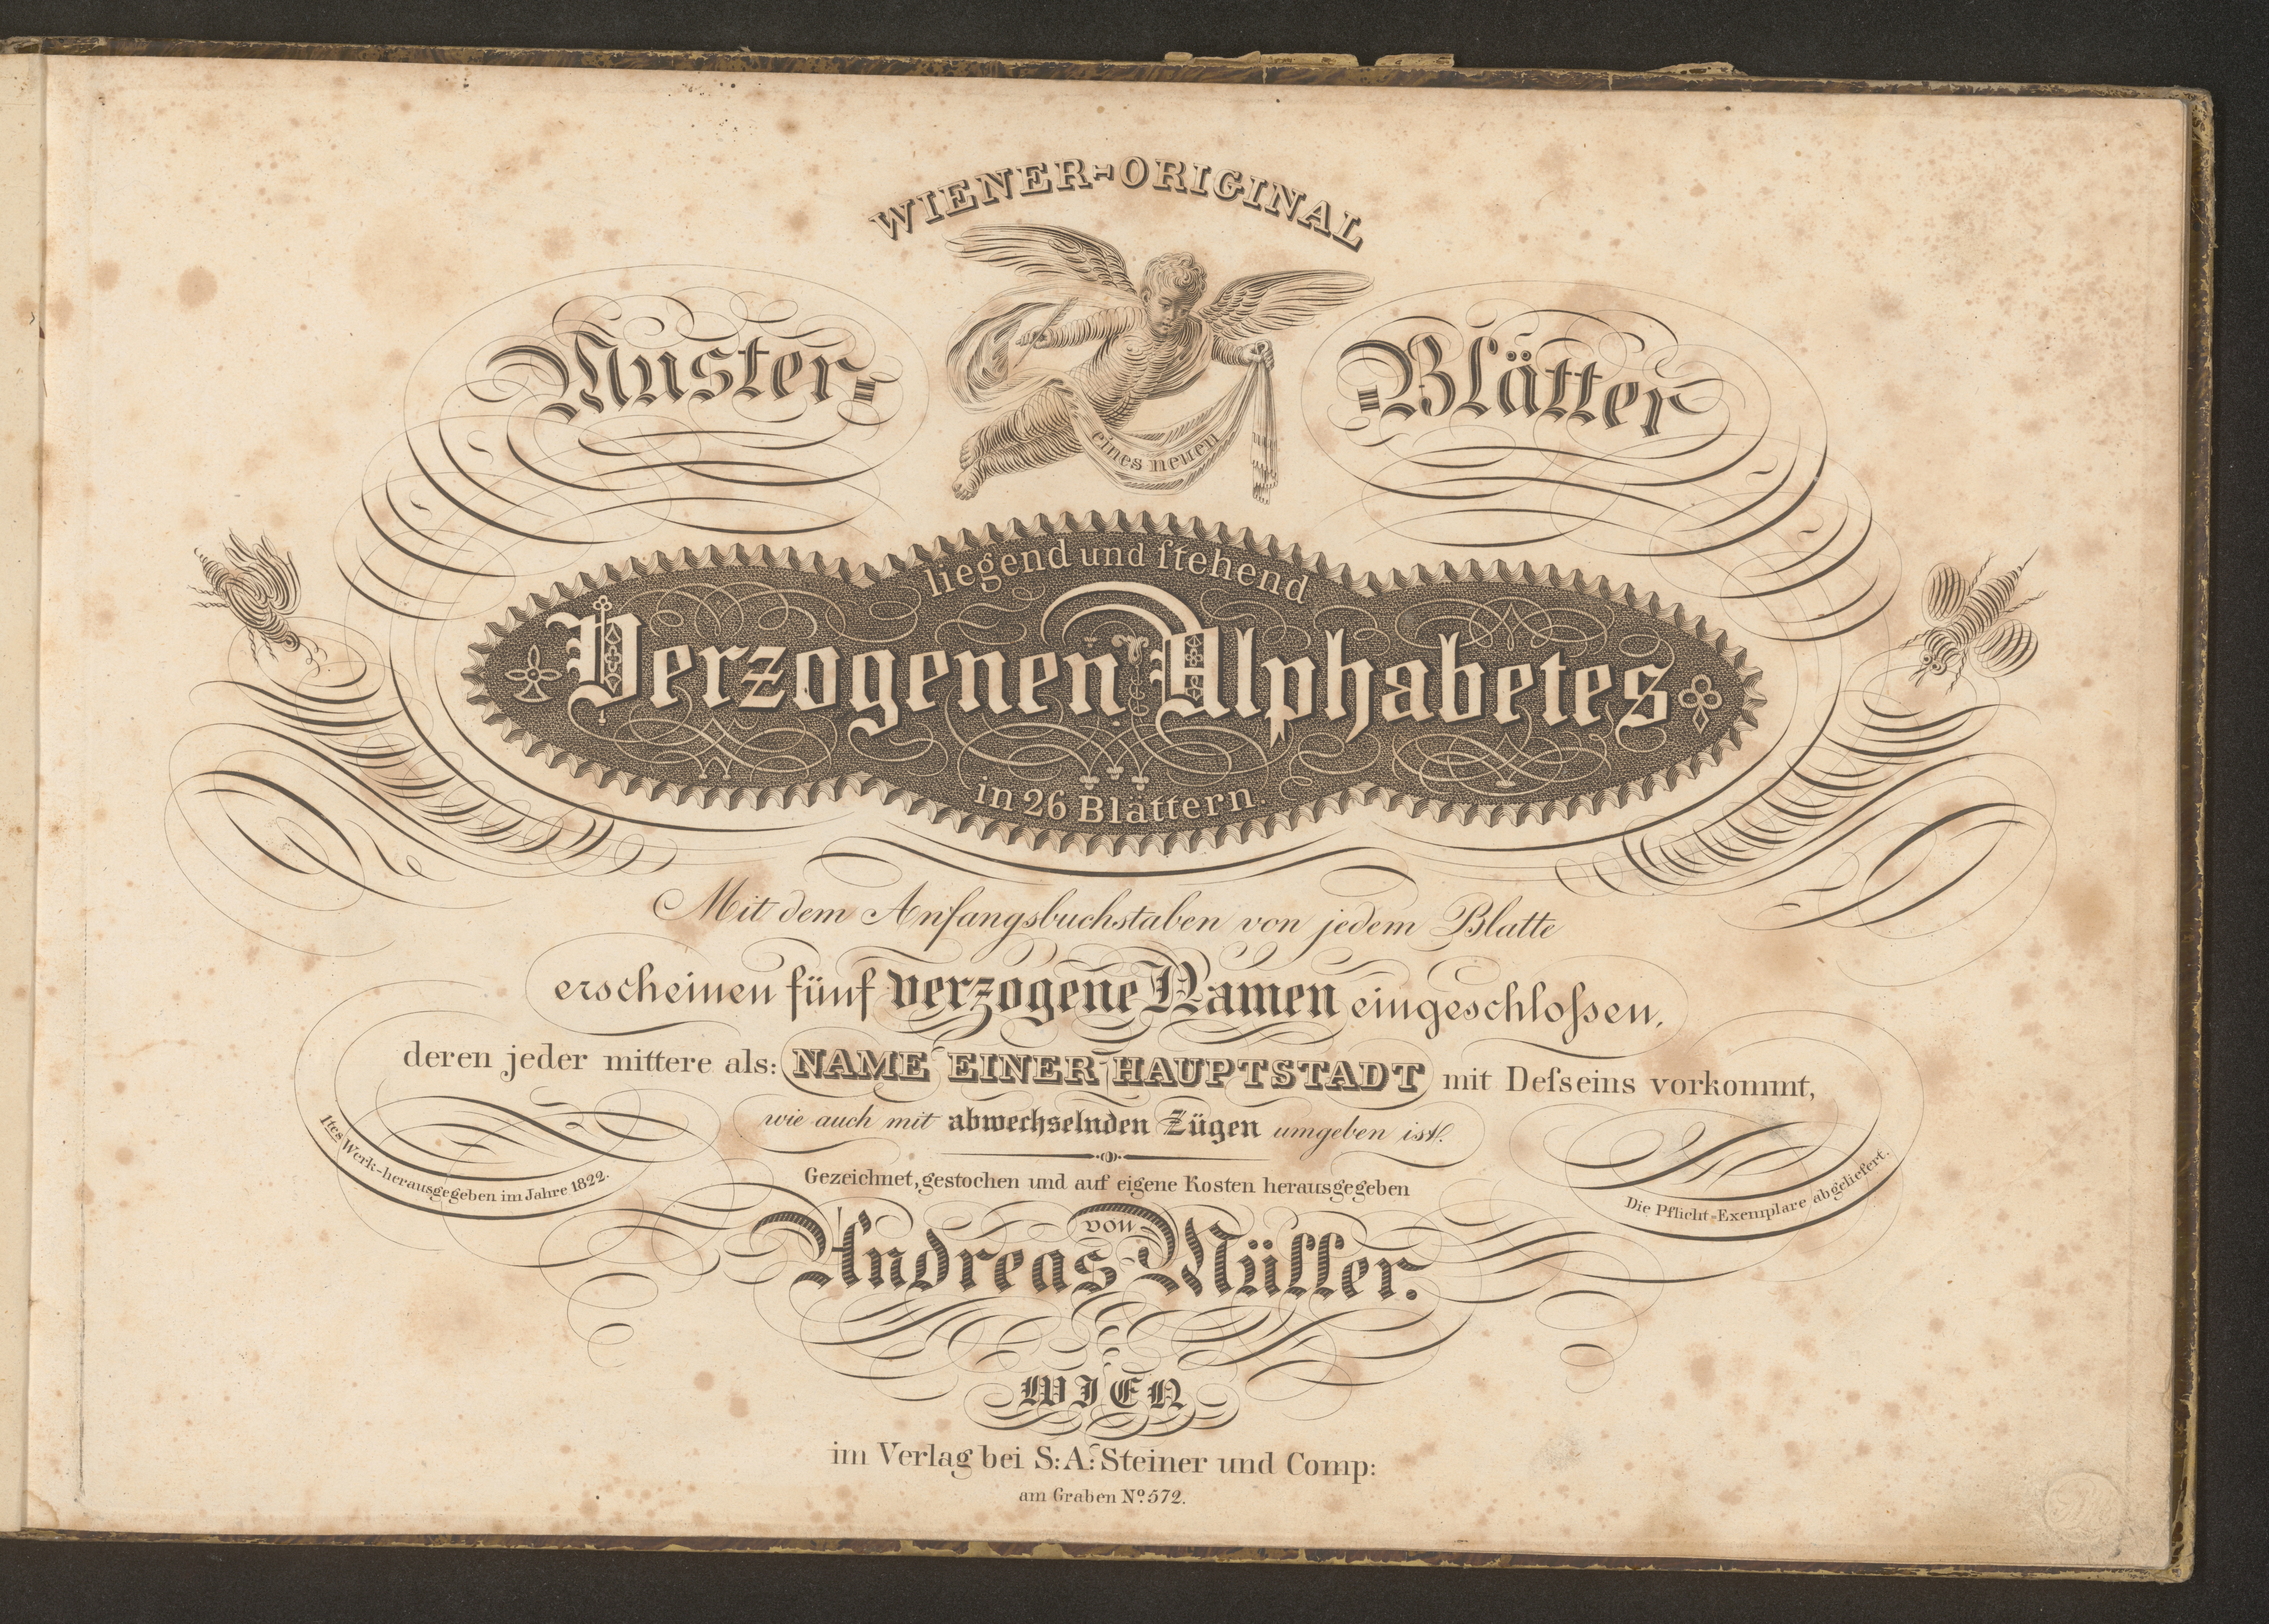 WIENER-ORIGINAL
Muster- -Blätter
eines neuen
liegend und ſtehend
Verzogenen Alphabetes
in 26 Blättern.
Mit dem Anfangsbuchstaben von jedem Blatte
erscheinen fünf verzogene Namen eingeschloſsen,
deren jeder mittere als: NAME EINER HAUPTSTADT mit Deſseins vorkommt,
wie auch mit abwechselnden Zügen umgeben ist.
1tes Werk-herausgegeben im Jahre 1822.
Die Pflicht-Exemplare abgeliefert.
Gezeichnet, gestochen und auf eigene Kosten herausgegeben
von
Andreas Müller.
WIEN
im Verlag bei S: A: Steiner und Comp:
am Graben Nº 572.